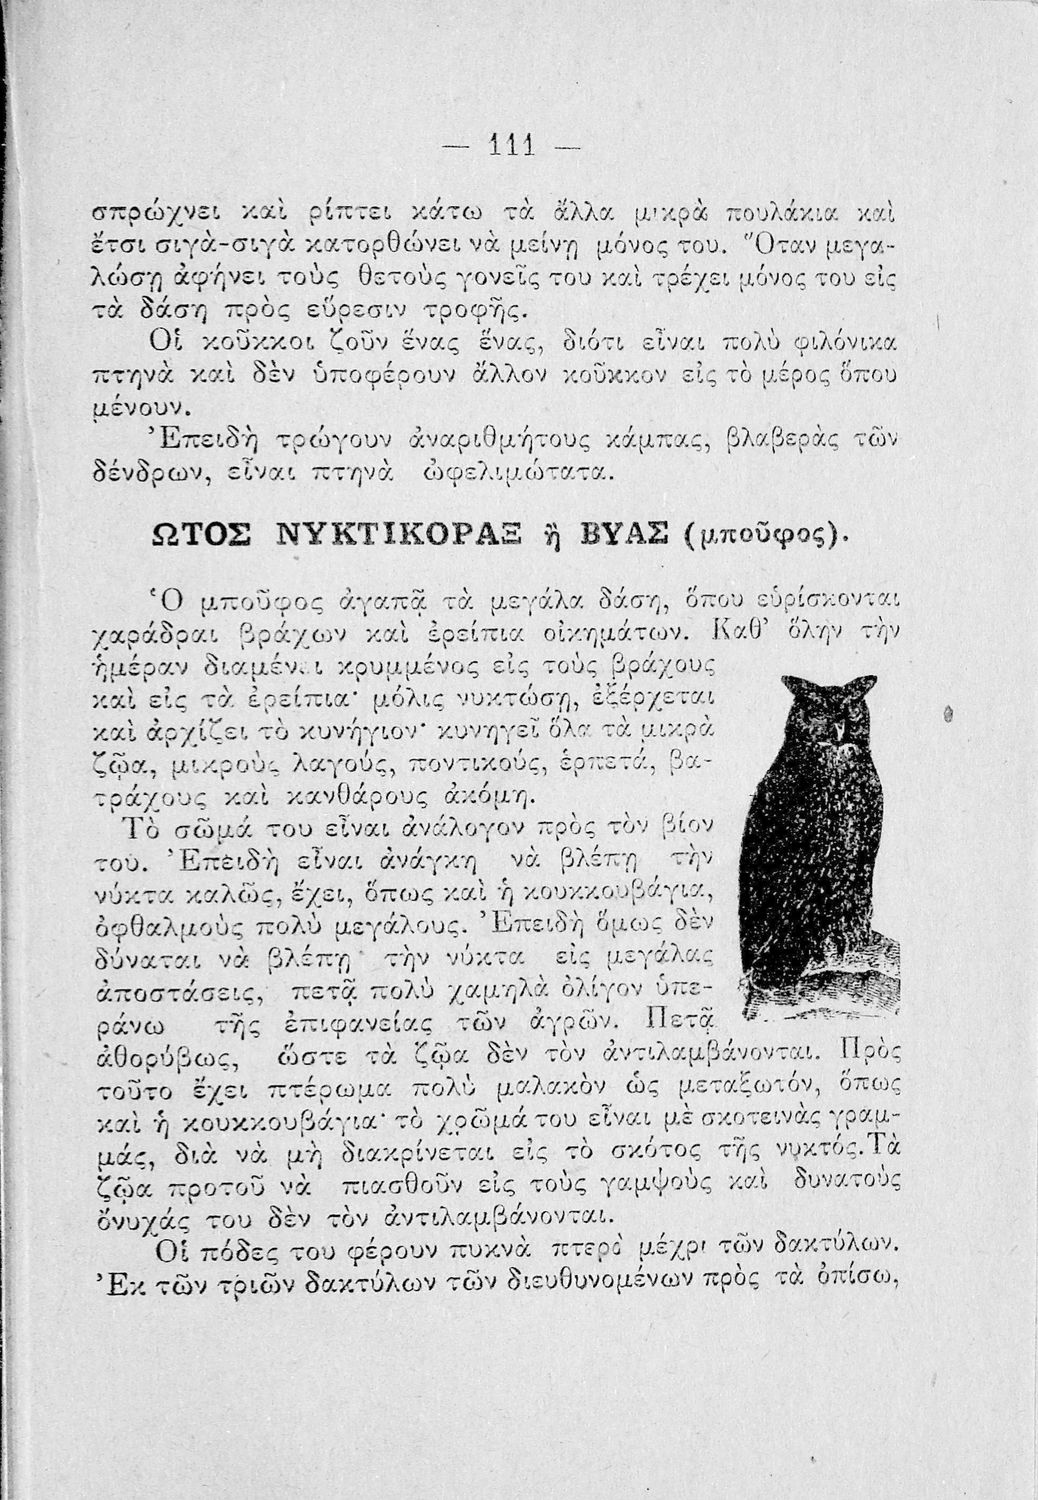 — 111 —
σπρώχνει καὶ ρίπτει κάτω τὰ ἄλλα μικρὰ πουλάκια καὶ
ἔτσι σιγὰ-σιγὰ κατορθώνει νὰ μείνῃ μόνος του. Ὅταν μεγα-
λώσῃ ἀφήνει τοὺς θετοὺς γονεῖς του καὶ τρέχει μόνος του εἰς
τὰ δάση πρὸς εὕρεσιν τροφῆς.
Οἱ κοῦκκοι ζοῦν ἕνας ἕνας, διότι εἶναι πολὺ φιλόνικα
πτηνὰ καὶ δὲν ὑποφέρουν ἄλλον κοῦκκον εἰς τὸ μέρος ὅπου
μένουν.
Ἐπειδὴ τρώγουν ἀναριθμήτους κάμπας, βλαβερὰς τῶν
δένδρων, εἶναι πτηνὰ ὠφελιμώτατα.
ΩΤΟΣ ΝΥΚΤΙΚΟΡΑΞ ἢ ΒΥΑΣ (μποῦφος).
Ὁ μποῦφος ἀγαπᾷ τὰ μεγάλα δάση, ὅπου εὑρίσκονται
χαράδραι βράχων καὶ ἐρείπια οἰκημάτων. Καθ’ ὅλην τὴν
ἡμέραν διαμένει κρυμμένος εἰς τοὺς βράχους
καὶ εἰς τὰ ἐρείπια· μόλις νυκτώσῃ, ἐξέρχεται
καὶ ἀρχίζει τὸ κυνήγιον· κυνηγεῖ ὅλα τὰ μικρὰ
ζῷα, μικροὺς λαγούς, ποντικούς, ἑρπετά, βα-
τράχους καὶ κανθάρους ἀκόμη.
Τὸ σῶμά του εἶναι ἀνάλογον πρὸς τὸν βίον
του. Ἐπειδὴ εἶναι ἀνάγκη νὰ βλέπῃ τὴν
νύκτα καλῶς, ἔχει, ὅπως καὶ ἡ κουκκουβάγια,
ὀφθαλμοὺς πολὺ μεγάλους. Ἐπειδὴ ὅμως δὲν
δύναται νὰ βλέπῃ τὴν νύκτα εἰς μεγάλας
ἀποστάσεις, πετᾷ πολὺ χαμηλὰ ὀλίγον ὑπε-
ράνω τῆς ἐπιφανείας τῶν ἀγρῶν. Πετᾷ
ἀθορύβως, ὥστε τὰ ζῷα δὲν τὸν ἀντιλαμβάνονται. Πρὸς
τοῦτο ἔχει πτέρωμα πολὺ μαλακὸν ὡς μεταξωτόν, ὅπως
καὶ ἡ κουκκουβάγια· τὸ χρῶμά του εἶναι μὲ σκοτεινὰς γραμ-
μάς, διὰ νὰ μὴ διακρίνεται εἰς τὸ σκότος τῆς νυκτός. Τὰ
ζῷα προτοῦ νὰ πιασθοῦν εἰς τοὺς γαμψοὺς καὶ δυνατοὺς
ὄνυχάς του δὲν τὸν ἀντιλαμβάνονται.
Οἱ πόδες του φέρουν πυκνὰ πτερὰ μέχρι τῶν δακτύλων.
Ἐκ τῶν τριῶν δακτύλων τῶν διευθυνομένων πρὸς τὰ ὀπίσω,